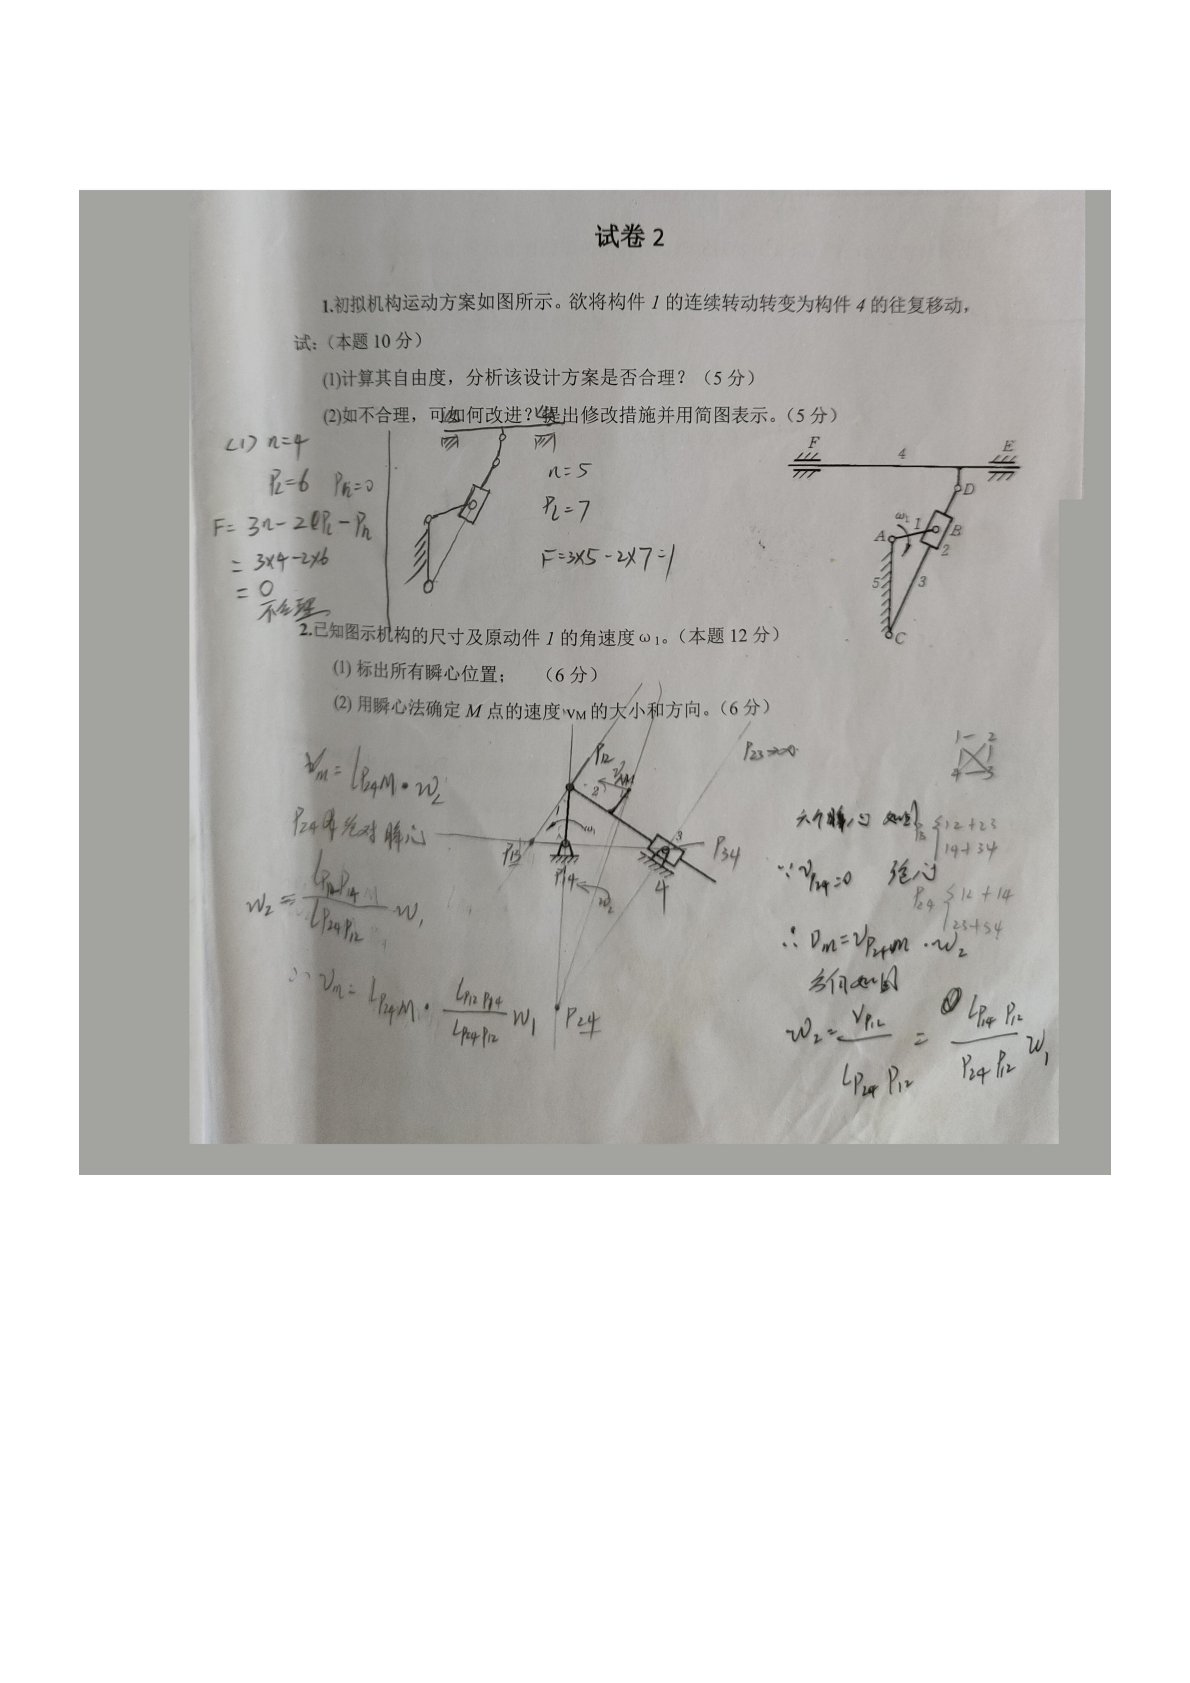 试卷 2
1.初拟机构运动方案如图所示。欲将构件 1 的连续转动转变为构件 4 的往复移动，
试:（本题 10 分）
(1)计算其自由度，分析该设计方案是否合理？（5 分）
(2)如不合理，可如何改进？提出修改措施并用简图表示。（5 分）
(1) n=4
PL=6 Ph=0
F= 3n-2PL-Ph
= 3×4-2×6
= 0
不合理
n=5
PL=7
F=3×5-2×7=1
F
4
E
D
ω1
1
A
B
2
5
3
C
2.已知图示机构的尺寸及原动件 1 的角速度 ω1。（本题 12 分）
(1) 标出所有瞬心位置； （6 分）
(2) 用瞬心法确定 M 点的速度 vM 的大小和方向。（6 分）
Vm = LP24M · ω2
P24 绝对瞬心
ω2 = LP12P14 / LP24P12 ω1
∴ Vm = LP24M · LP12P14 / LP24P12 ω1
P12
P23→∞
1
2
3
ω1
P13
P14
P34
4
ω2
P24
1 2
4 3
六个瞬心 如图
P13 { 12+23
14+34
∵ VP24=0
P24 { 12+14
23+34
∴ Vm=VP24m · ω2
方向如图
ω2 = VP12 / LP24P12 = LP14P12 / P24P12 ω1